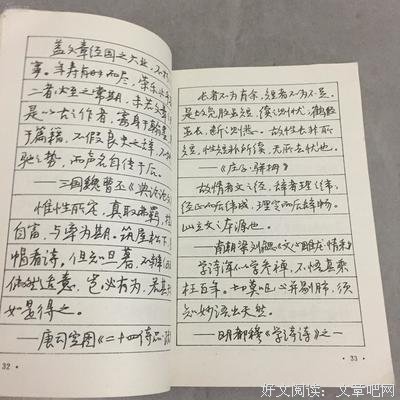 盖文章经国之大业，不朽
事。年寿有时而尽，荣乐止
二者必至之常期，未若文章
是以古之作者，寄身于翰墨
于篇籍，不假良史之辞，不
驰之势，而声名自传于后。
——三国魏曹丕《典论论文
惟性所宅，真取弗羁，
自富，与率为期。筑屋松下
帽看诗。但知旦暮，不辨
倘然适意，岂必有为，若其
如是得之。
——唐司空图《二十四诗品
32
长者不为有余，短者不为不足。
是故凫胫虽短，续之则忧，鹤胫
虽长，断之则悲。故性长非所
断，性短非所续，无所去忧也。
《庄子·骈拇》
故情者文之经，辞者理之纬，
经正而后纬成，理定而后辞畅。
此立文之本源也。
——南朝梁刘勰《文心雕龙·情采》
学诗浑似学参禅，不悟真乘
枉百年。切莫呕心并剔肺，须
知妙语出天然。
——明都穆《学诗诗》之一
33
好文阅读：文章吧网